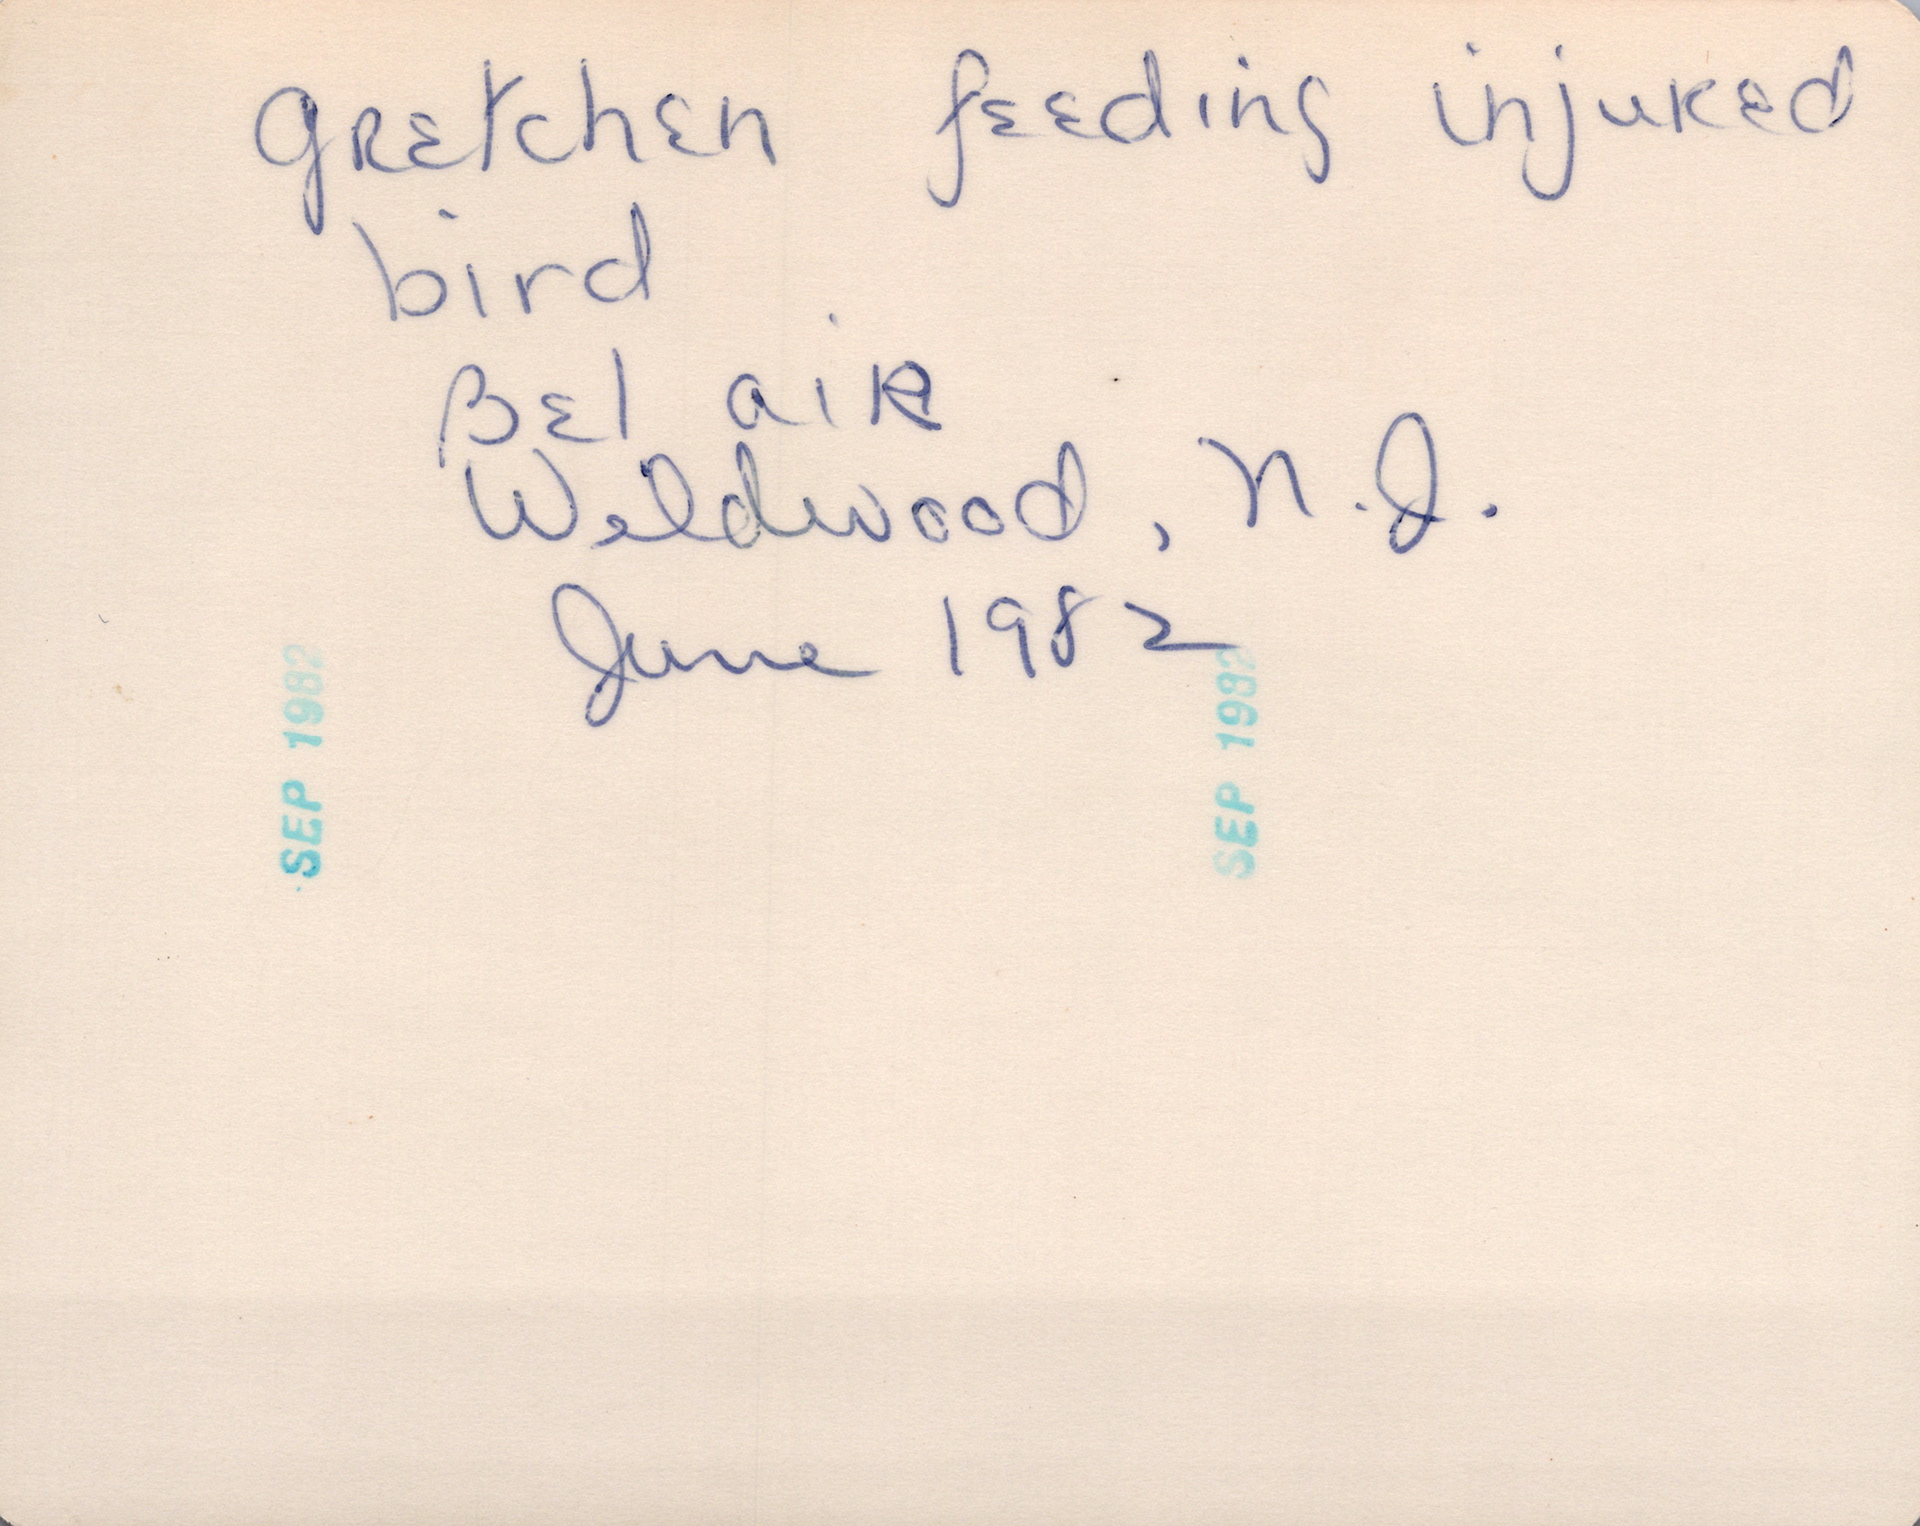 Gretchen feeding injured
bird
Bel air
Wildwood, N.J.
June 1982
SEP 1982
SEP 1982